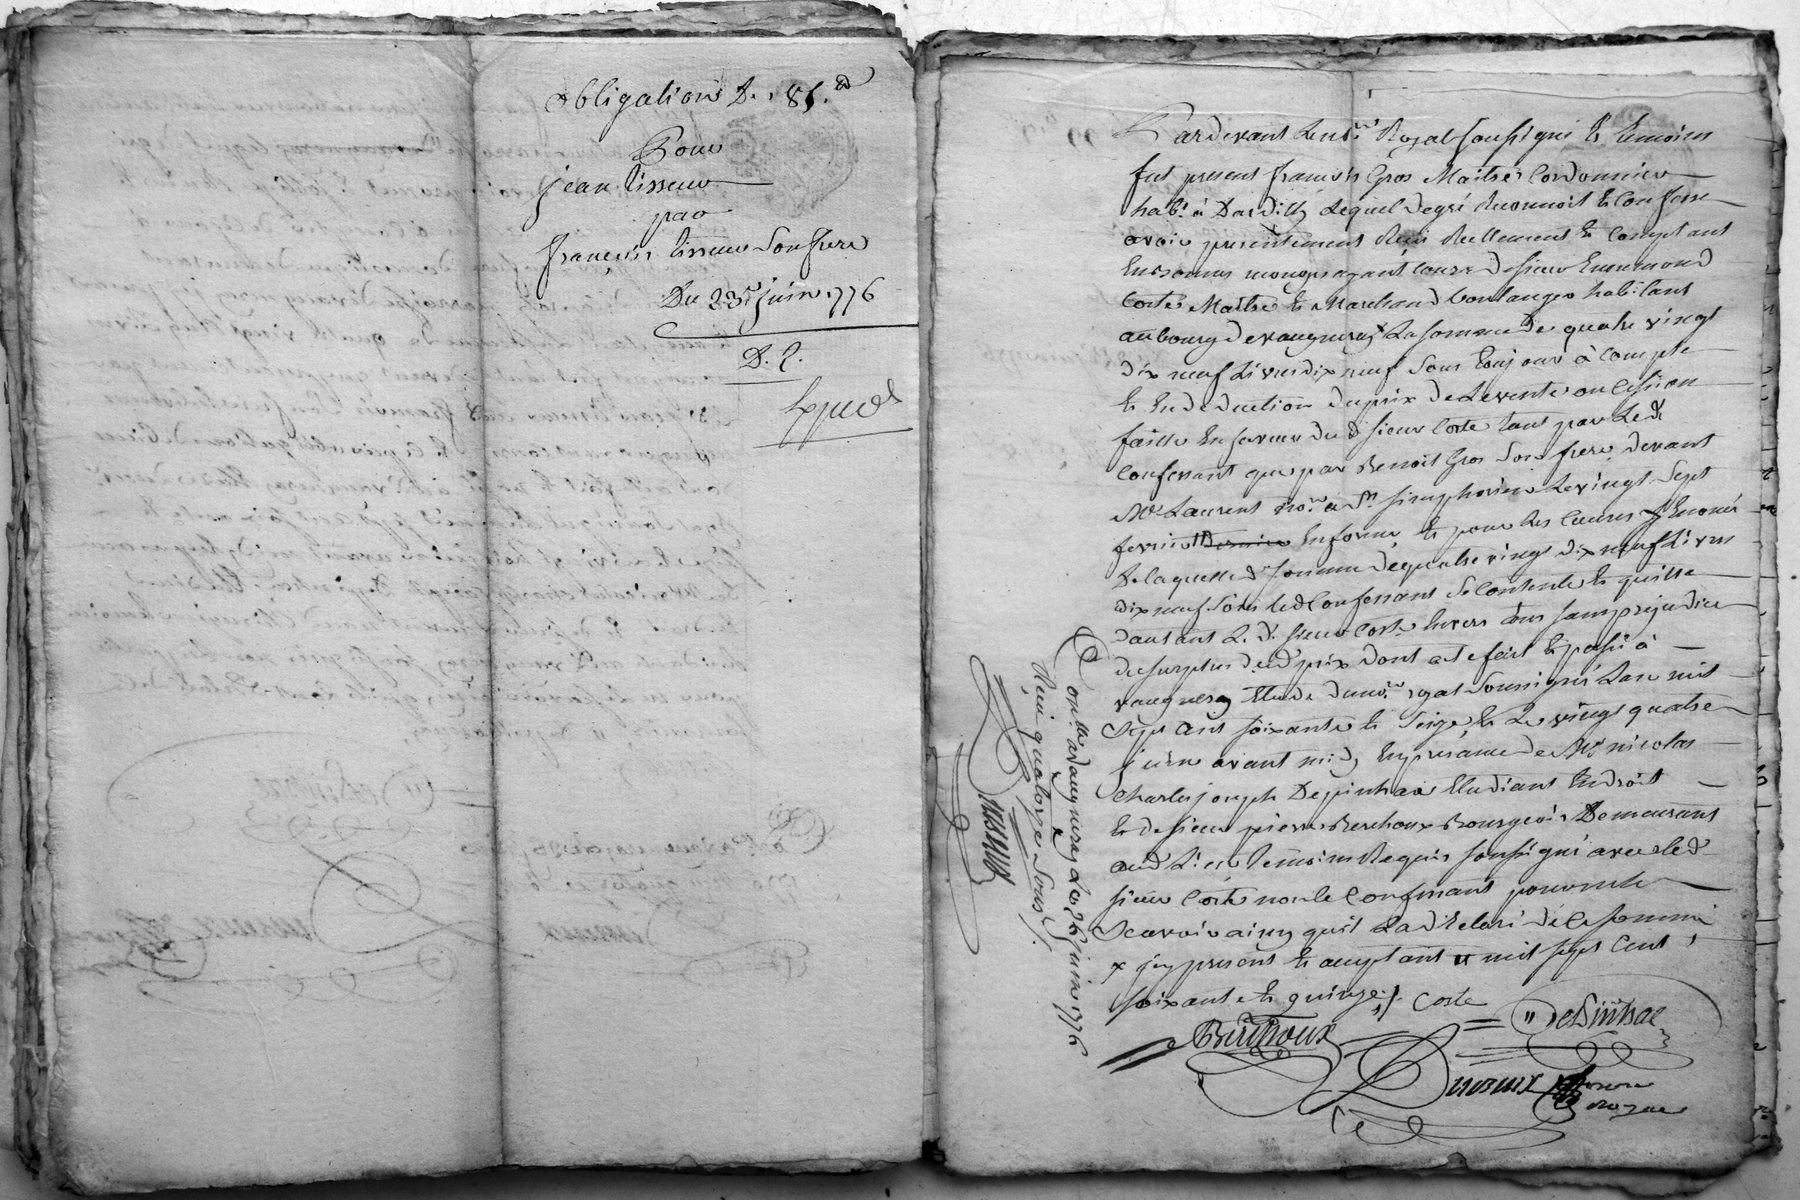 obligation D. 85.#
Pour
jean tisseur
par
françois tisseur Son frere
Du 23e juin 1776
D. 2.
Expéd
Pardevant Le no.re Royal Soussigné Et temoins
fut present françois Gros Maitre Cordonnier
hab.t à Dardilly Lequel degré Reconnoit Et Confesse
avoir presentement Reçu Reellement Et Comptant
En Bonnes monoyes ayant Cours de sieur Ennemond
Coste Maitre Et Marchand boulanger habitant
au bourg de vaugneray La somme de quatre vingt
dix neuf Livres dix neuf Sous Toujours à Compte
Et En deduction du prix de La vente ou Cession
faitte En faveur dud Sieur Coste tant par Led
Confessant que par Benoit Gros Son frere devant
Me Laurent no.re a St Simphorien Le vingt Sept
fevrier dernier Enforme Et pour les Causes y Enoncés
De laquelle d. somme de quatre vingt dix neuf Livres
dix neuf Sous led Confessant Se Contente Et quitte
dautant L. d. sieur Coste Envers tous Sans prejudice
du surplus dud prix dont acte fait Et passé à
vaugneray Etude dunore royal Soussigné Lan mil
Sept Cent Soixante Et Seize Et Le vingt quatre
juin avant midy En presence de Me nicolas
Charles joseph Depinhac Etudiant En droit
Et de sieur pierre Berthoux Bourgeois Demeurant
aud Lieu temoins Requis soussigné avec led
sieur Coste non le Confessant pour ne
Scavoir ainsy quil La déclaré de Ce sommé
x j'ey present Et aceptant mil sept Cent
soixante Et quinze ./. Coste
DePinhac
Berthoux
Con.lle a Vaugneray Le 26 juin 1776
Reçu quatorze Sous